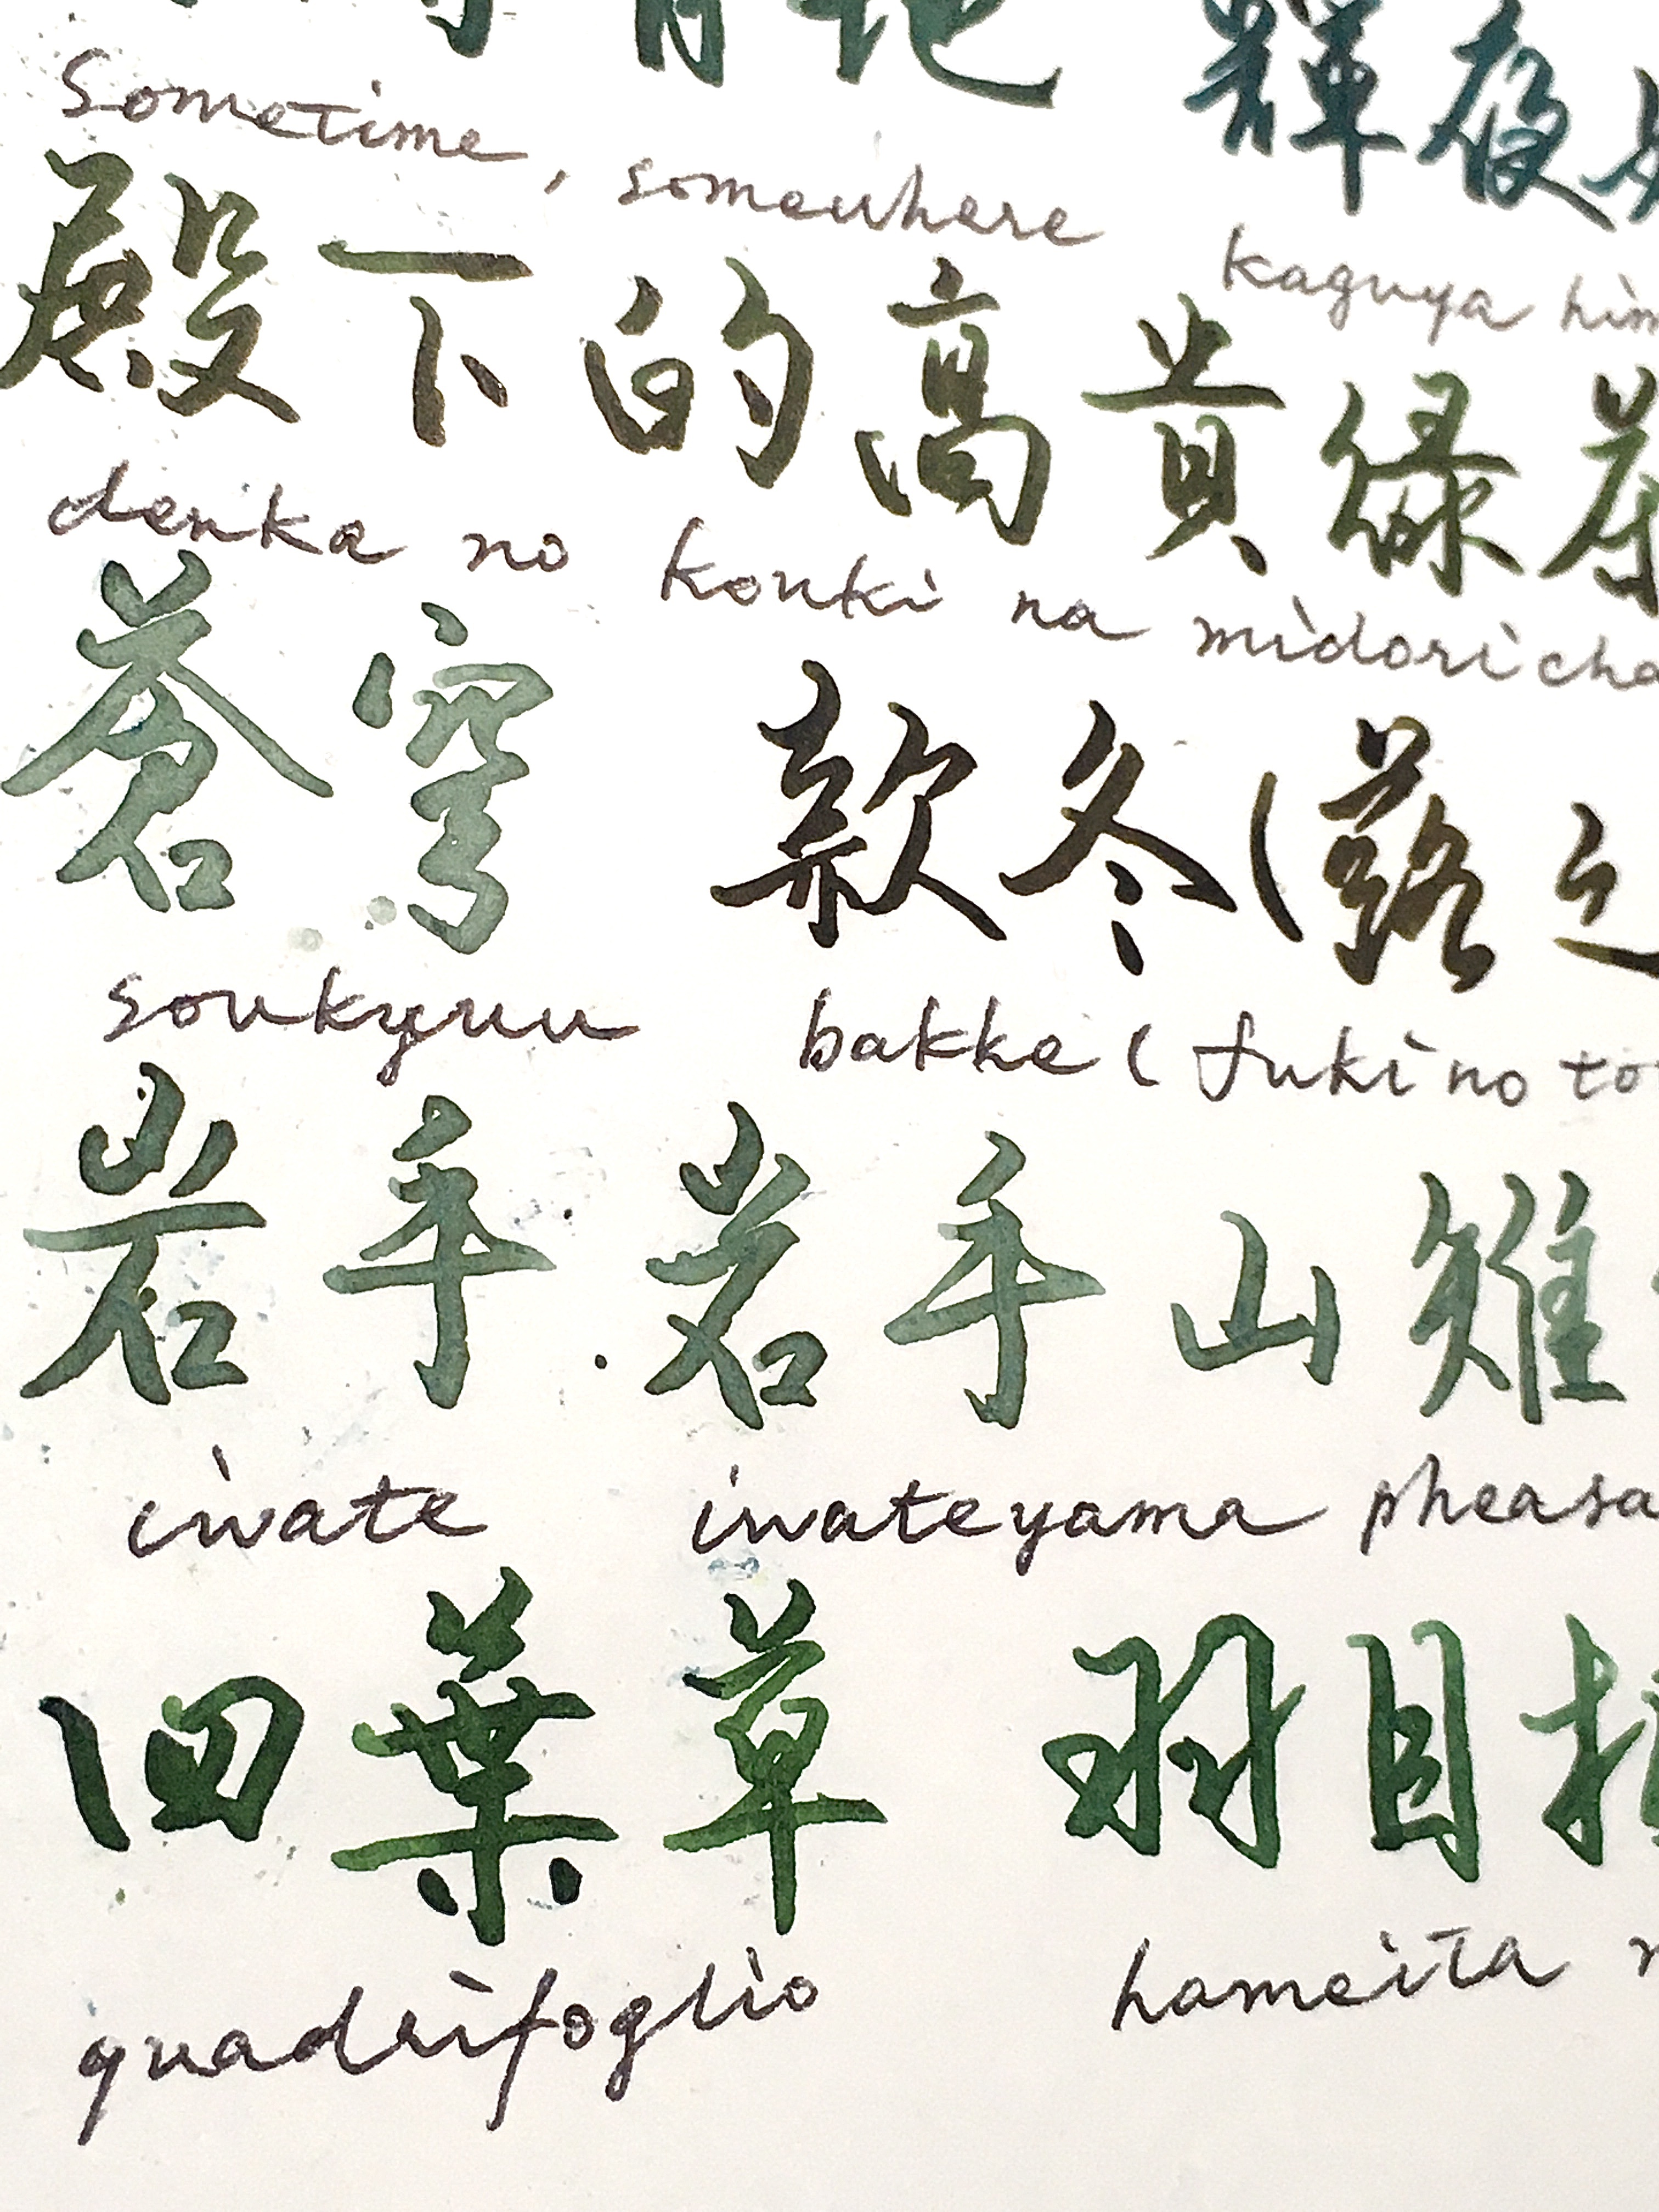 輝夜
sometime, somewhere kaguya him
殿下的高貴緑茶
denka no kouki na midori cha
蒼穹 款冬(蕗之
soukyuu bakke (fuki no to
岩手・岩手山雉
iwate iwateyama pheasa
四葉草 羽目
quadrifoglio hameita